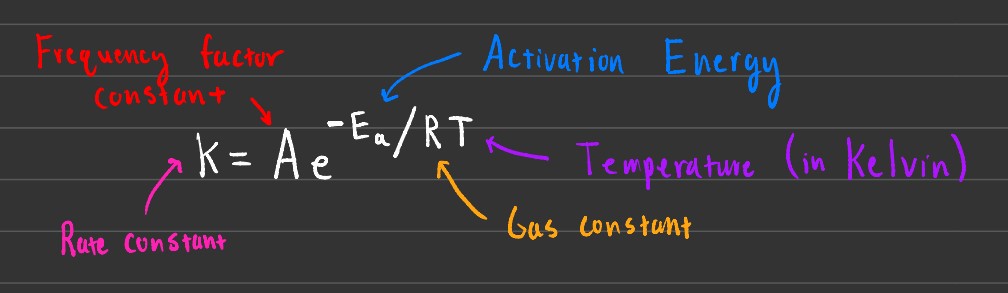 Frequency factor
constant
Activation Energy
k = A e^-Ea/RT
Temperature (in Kelvin)
Gas constant
Rate constant